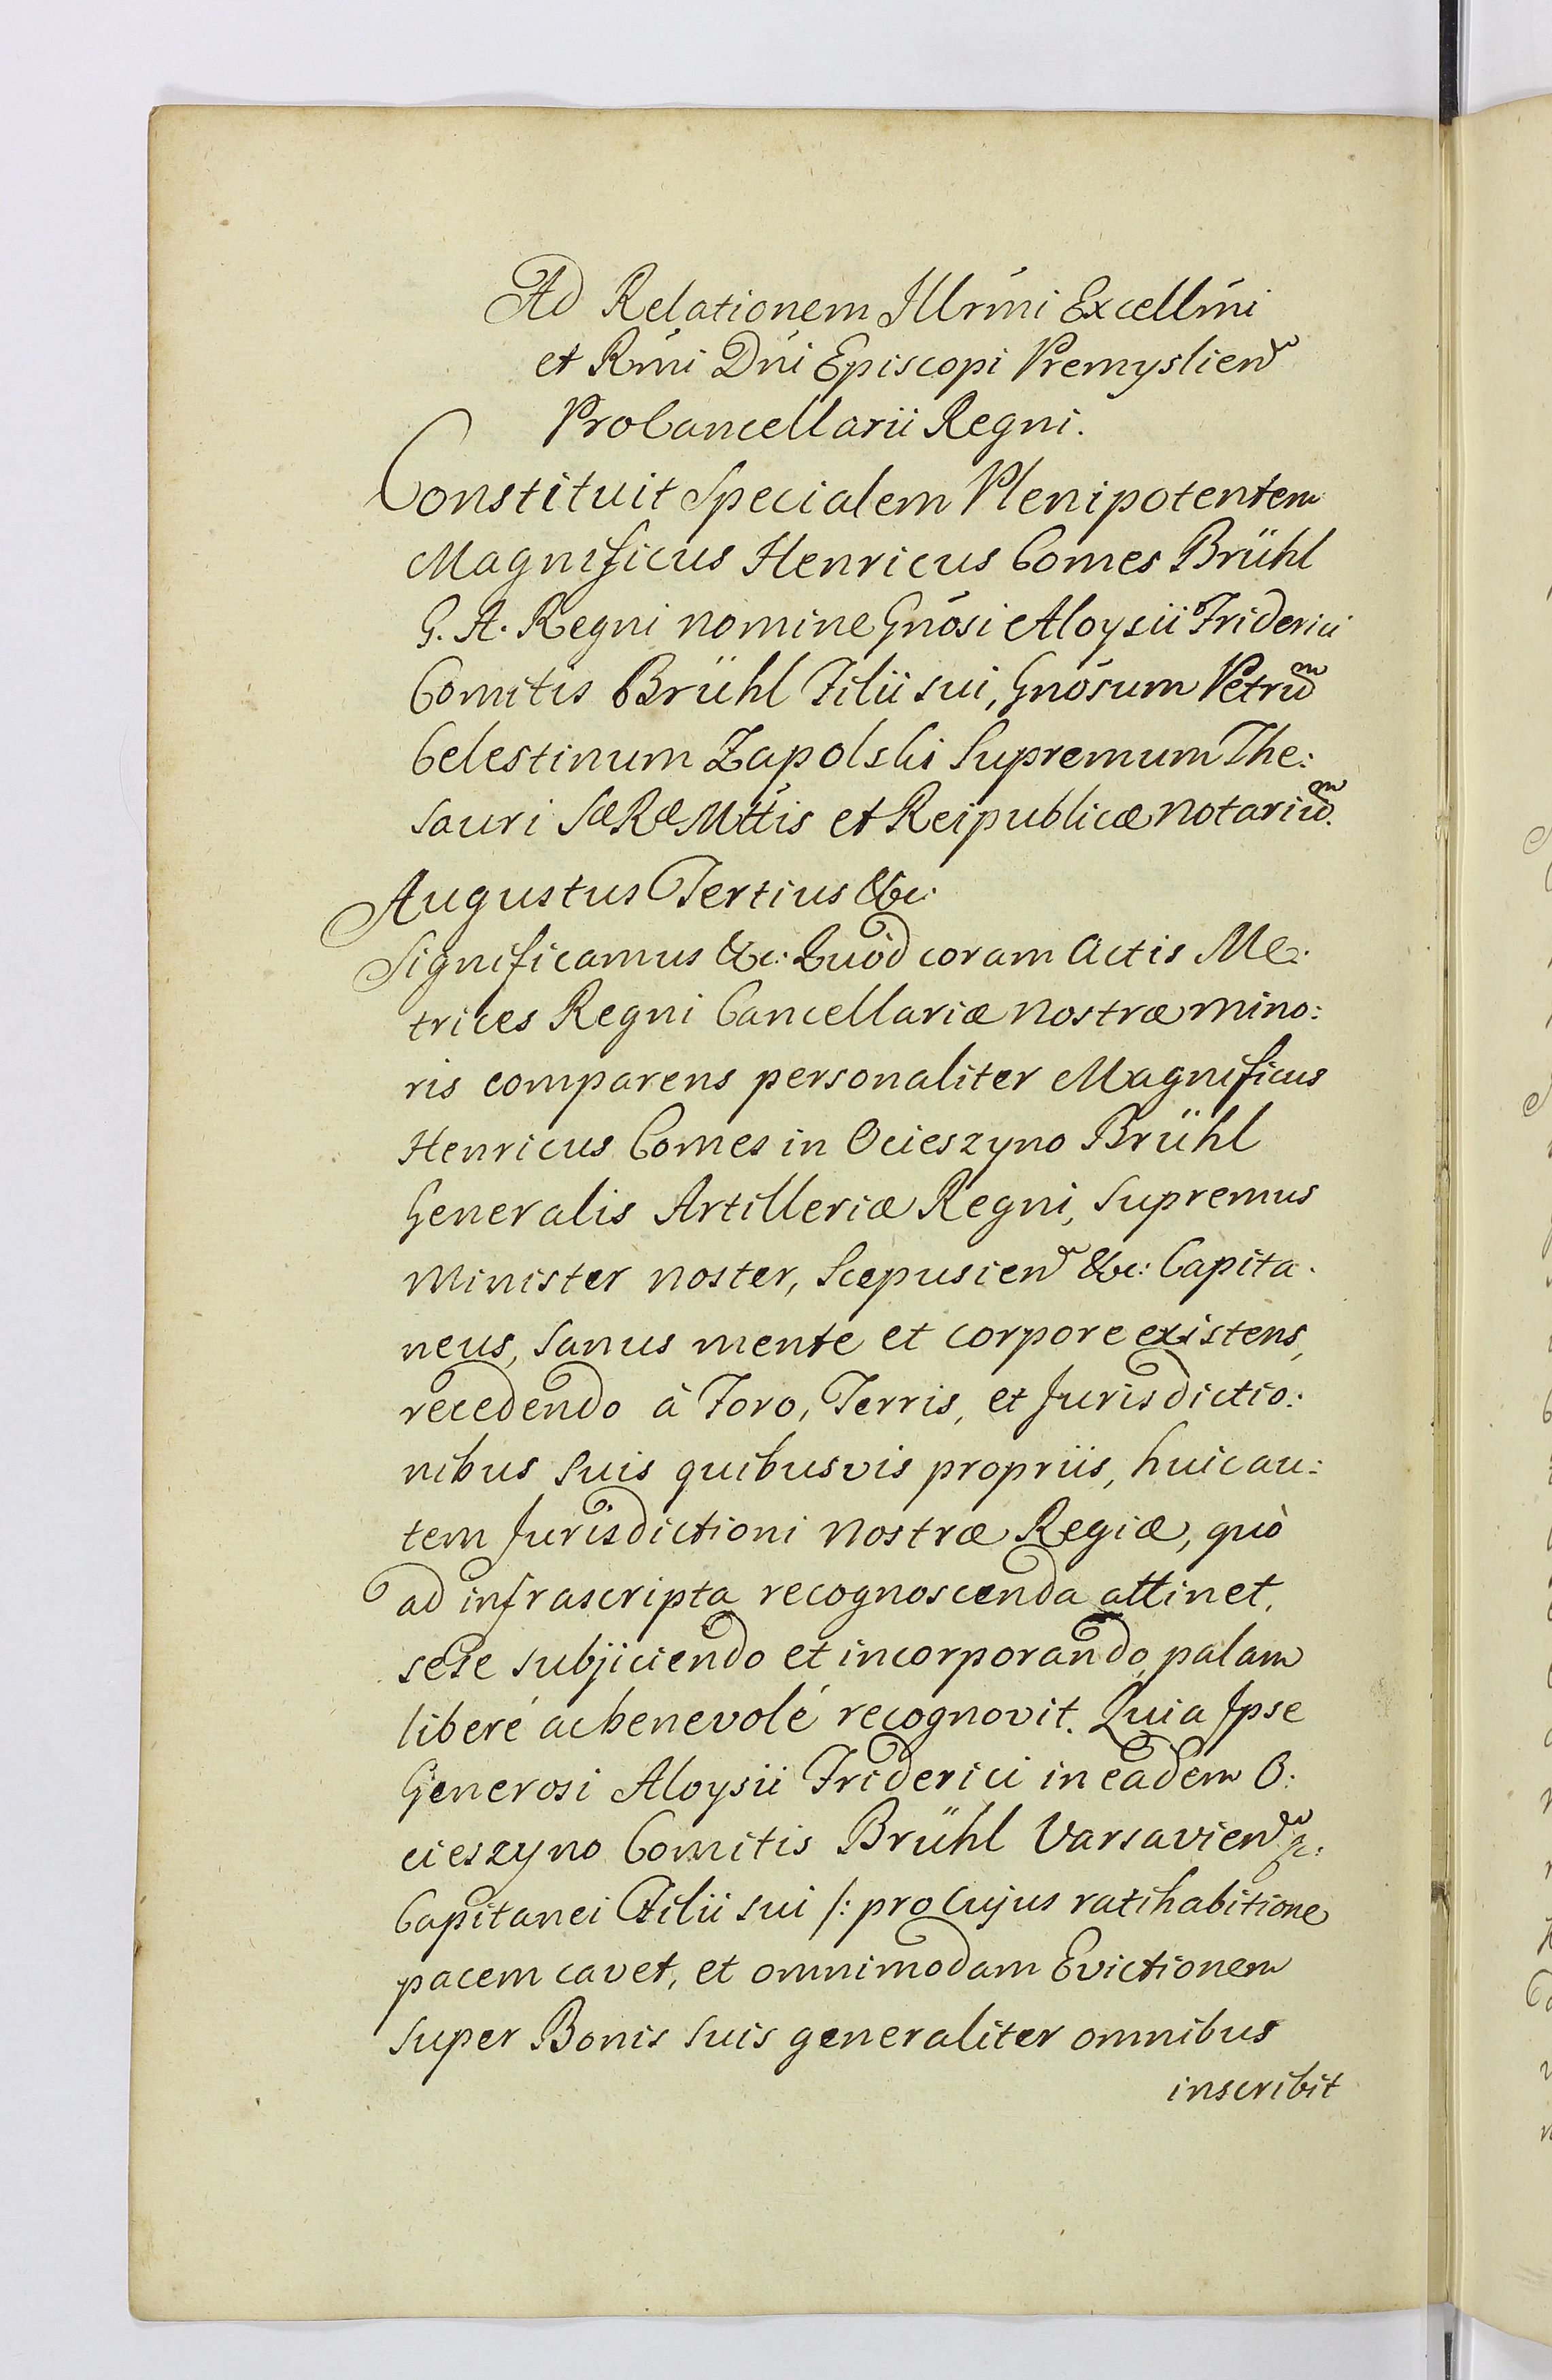 Ad Relationem Illrmi Excellmi
et Rmi Dni Episcopi Premyslien
ProCancellarii Regni.
Constituit Specialem Plenipotentem
Magnificus Henricus Comes Brühl
G. A. Regni nomine Gnosi Aloysii Friderici
Comitis Brühl Filii sui, Gnosum Petrum
Celestinum Zapolski Supremum The:
sauri SæRæMttis et Reipublicæ Notarium.
Augustus Tertius &c:
Significamus &c: Quòd coram Actis Me:
trices Regni Cancellariæ Nostræ mino:
ris comparens personaliter Magnificus
Henricus Comes in Ocieszyno Brühl
Generalis Artilleriæ Regni, Supremus
Minister Noster, Scepusien &c: Capita:
neus, sanus mente et corpore existens,
recedendo à Foro, Terris, et Jurisdictio:
nibus suis quibusvis propriis, huic au:
tem Jurisdictioni Nostræ Regiæ, quò
ad infrascripta recognoscenda attinet,
sese subjiciendo et incorporando, palam
liberé ac benevolé recognovit. Quia Ipse
Generosi Aloysii Friderici in eadem O:
cieszyno Comitis Brühl Varsavien &c:
Capitanei Filii sui /: pro cujus ratihabitione
pacem cavet, et omnimodam Evictionem
super Bonis suis generaliter omnibus
inscribit